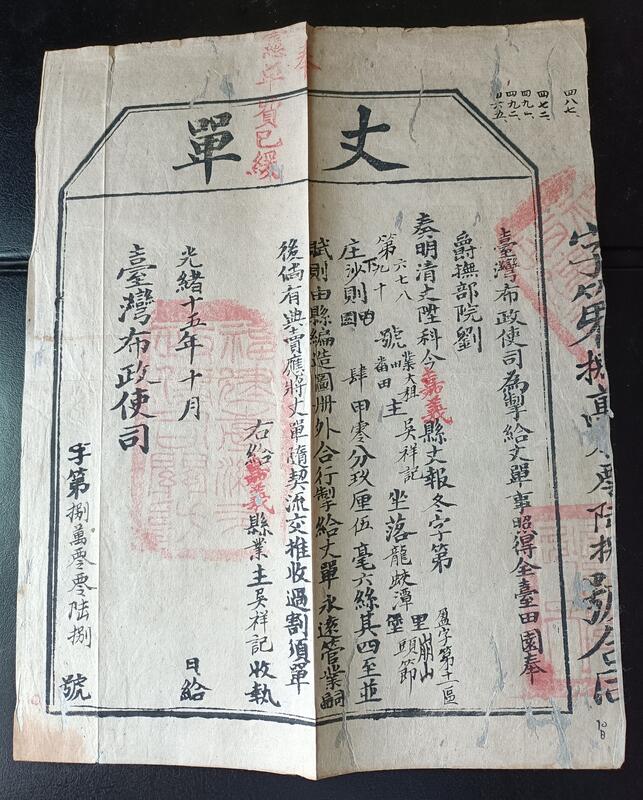 四八七、
四七二、
四九一、
四九二、
四六五、
丈單
臺灣布政使司為掣給丈單事照得全臺田園奉
爵撫部院劉
奏明清丈陞科今嘉義縣丈報冬字第
盈字第十一區
第六七八
九十
號
業大租
番田
主吳祥記坐落龍蛟潭
堡
里
崩山
頭節
庄沙則
下
園
肆甲零分玖厘伍毫六絲其四至並
賦則由縣編造圖冊外合行掣給丈單永遠管業嗣
後倘有典賣應將丈單隨契流交推收過割須單
右給嘉義縣業主吳祥記收執
光緒十五年十月
日給
臺灣布政使司
字第捌萬零零陸捌
號